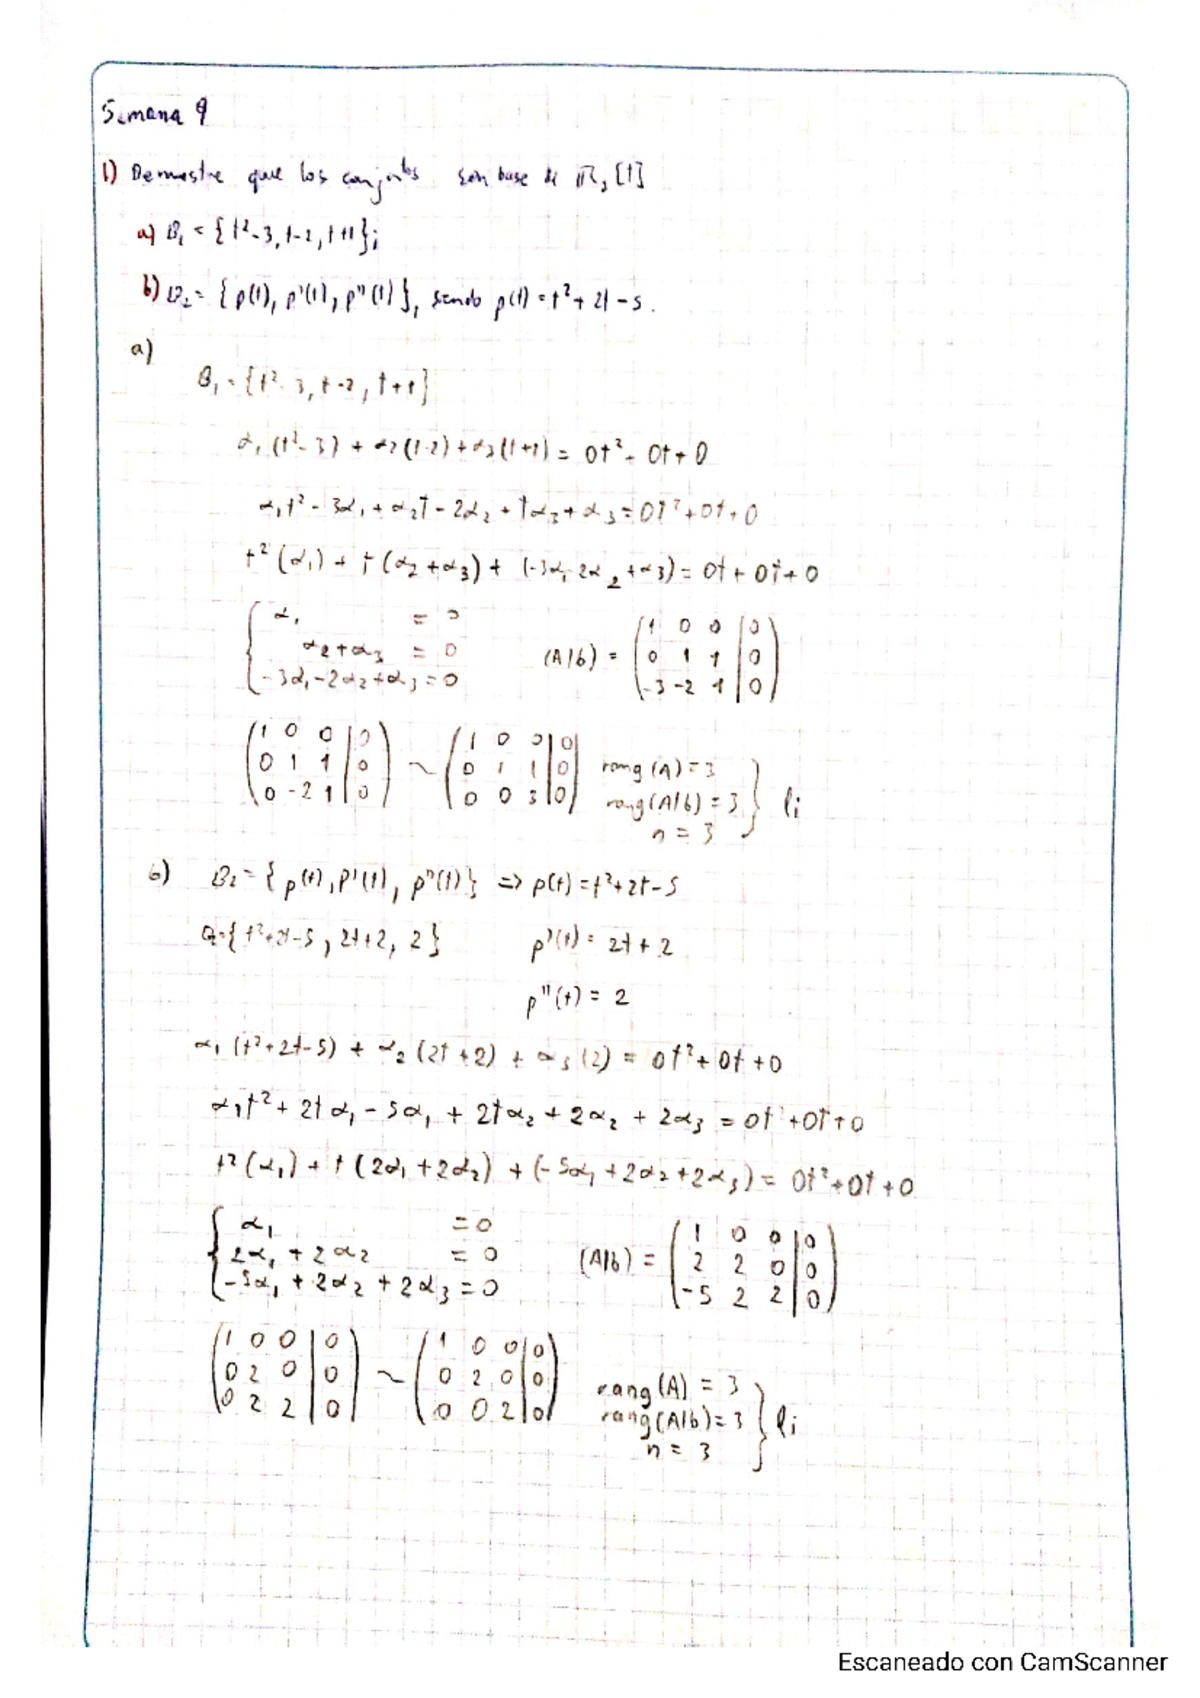 Semana 9
1) Demuestre que los conjuntos son base de ℝ₂[t]
a) B₁ = {t²-3, t-2, t+1};
b) B₂ = {p(t), p'(t), p''(t)}, siendo p(t) = t²+2t-5.
a)
B₁ = {t²-3, t-2, t+1}
α₁(t²-3) + α₂(t-2) + α₃(t+1) = 0t² + 0t + 0
α₁t² - 3α₁ + α₂t - 2α₂ + tα₃ + α₃ = 0t² + 0t + 0
t²(α₁) + t(α₂+α₃) + (-3α₁-2α₂+α₃) = 0t + 0t + 0
α₁ = 0
α₂+α₃ = 0 (A|b) = (1 0 0 | 0
0 1 1 | 0
-3α₁-2α₂+α₃ = 0 -3 -2 1 | 0)
(1 0 0 | 0 (1 0 0 | 0
0 1 1 | 0 ~ 0 1 1 | 0 rang(A) = 3
0 -2 1 | 0) 0 0 3 | 0) rang(A|b) = 3 } li
n = 3
b) B₂ = {p(t), p'(t), p''(t)} => p(t) = t²+2t-5
= {t²+2t-5, 2t+2, 2} p'(t) = 2t+2
p''(t) = 2
α₁(t²+2t-5) + α₂(2t+2) + α₃(2) = 0t² + 0t + 0
α₁t² + 2tα₁ - 5α₁ + 2tα₂ + 2α₂ + 2α₃ = 0t² + 0t + 0
t²(α₁) + t(2α₁+2α₂) + (-5α₁+2α₂+2α₃) = 0t² + 0t + 0
α₁ = 0 (1 0 0 | 0
2α₁ + 2α₂ = 0 (A|b) = 2 2 0 | 0
-5α₁ + 2α₂ + 2α₃ = 0 -5 2 2 | 0)
(1 0 0 | 0 (1 0 0 | 0
0 2 0 | 0 ~ 0 2 0 | 0 rang(A) = 3
0 2 2 | 0) 0 0 2 | 0) rang(A|b) = 3 } li
n = 3
Escaneado con CamScanner